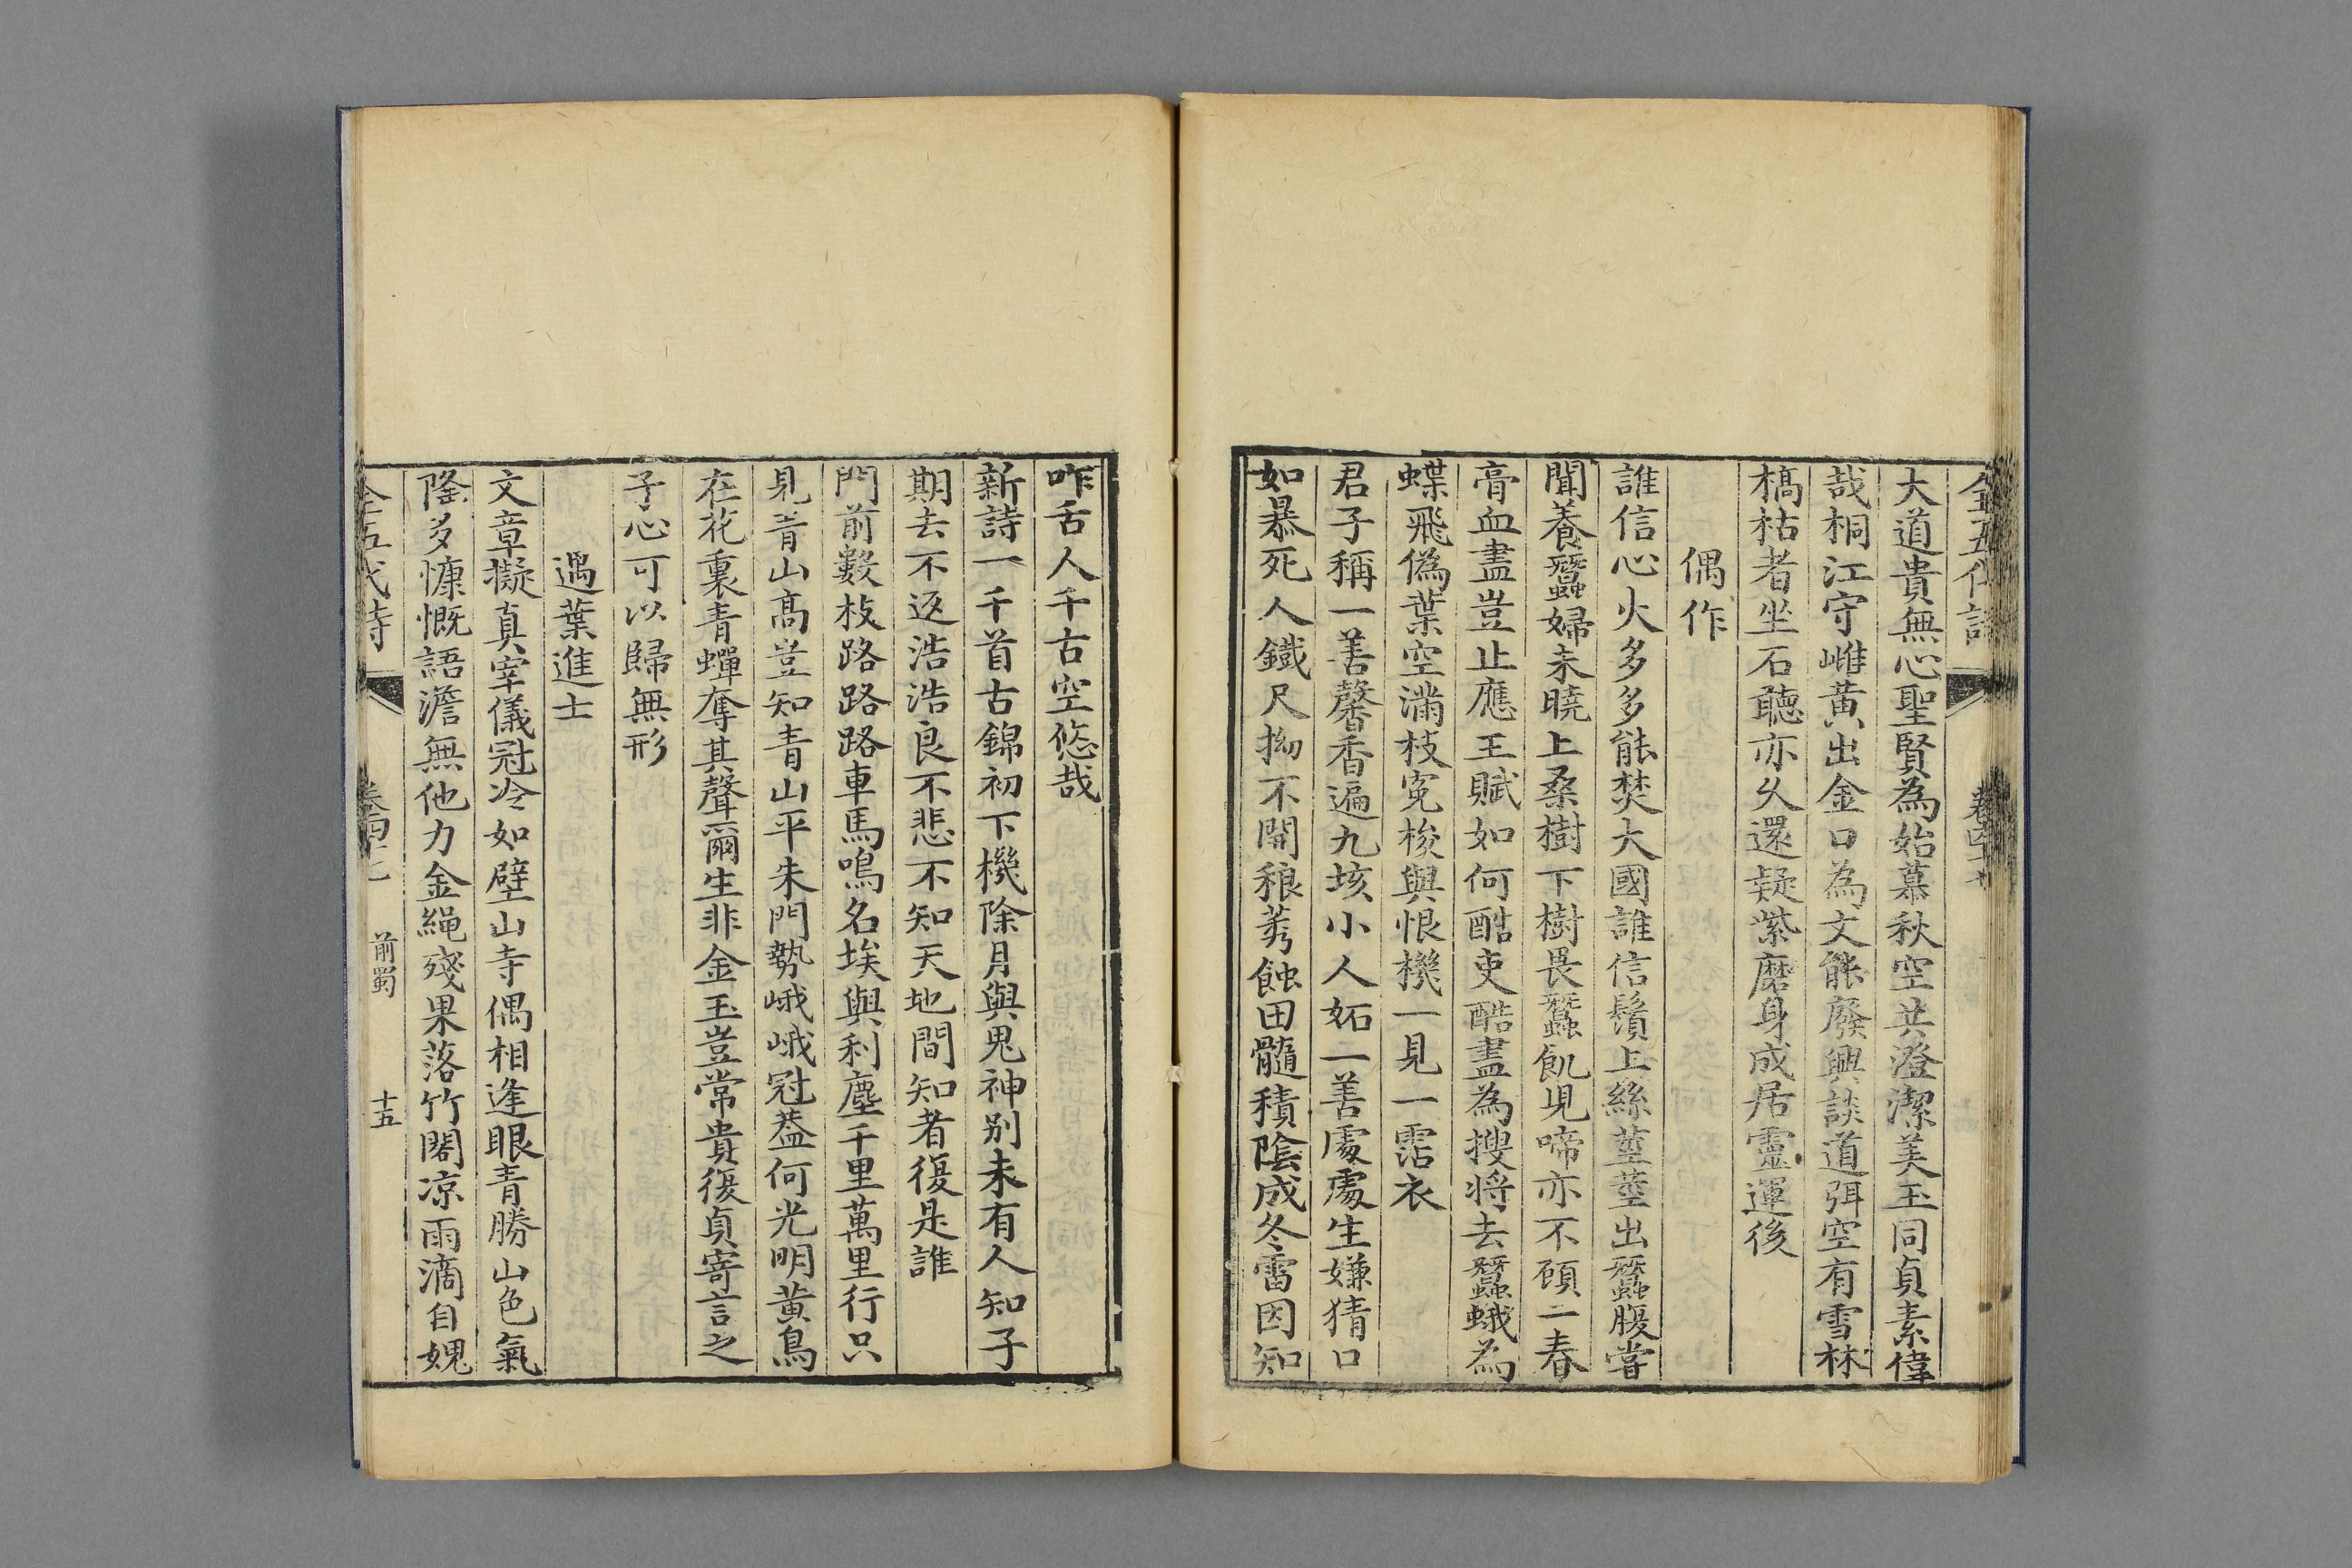 全五代詩
大道貴無心聖賢為始慕秋空共澄潔美玉同貞素偉
哉桐江守雌黄出金口為文能廢興談道弭空有雪林
槁枯者坐石聽亦久還疑紫磨身成居靈運後
偶作
誰信心火多多能焚大國誰信鬢上絲莖莖出蠶腹嘗
聞養蠶婦未曉上桑樹下樹畏蠶飢兒啼亦不顧一春
膏血盡豈止應王賦如何酷吏酷盡為搜將去蠶蛾為
蝶飛偽葉空滿枝冤梭與恨機一見一霑衣
君子稱一善馨香遍九垓小人妬一善處處生嫌猜口
如暴死人鐵尺拗不開稂莠蝕田髓積陰成冬雷因知
咋舌人千古空悠哉
新詩一千首古錦初下機除月與鬼神别未有人知子
期去不返浩浩良不悲不知天地間知者復是誰
門前數枝路路路車馬鳴名埃與利塵千里萬里行只
見青山高豈知青山平朱門勢峨峨冠葢何光明黄鳥
在花裏青蟬奪其聲爾生非金玉豈常貴復貞寄言之
子心可以歸無形
遇葉進士
文章擬真宰儀冠冷如壁山寺偶相逢眼青勝山色氣
隆多慷慨語澹無他力金繩殘果落竹閣凉雨滴自媿
全五代詩
前蜀
十五